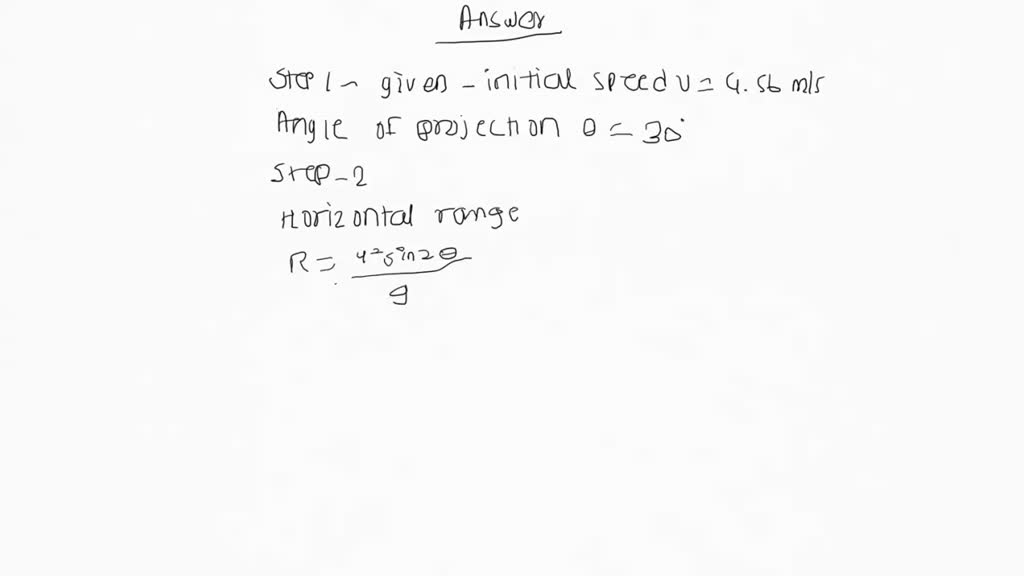 Answer
Step 1 ~ given - initial speed u = 4.56 m/s
Angle of projection θ = 30°
Step - 2
Horizontal range
R = u² sin 2 θ
g